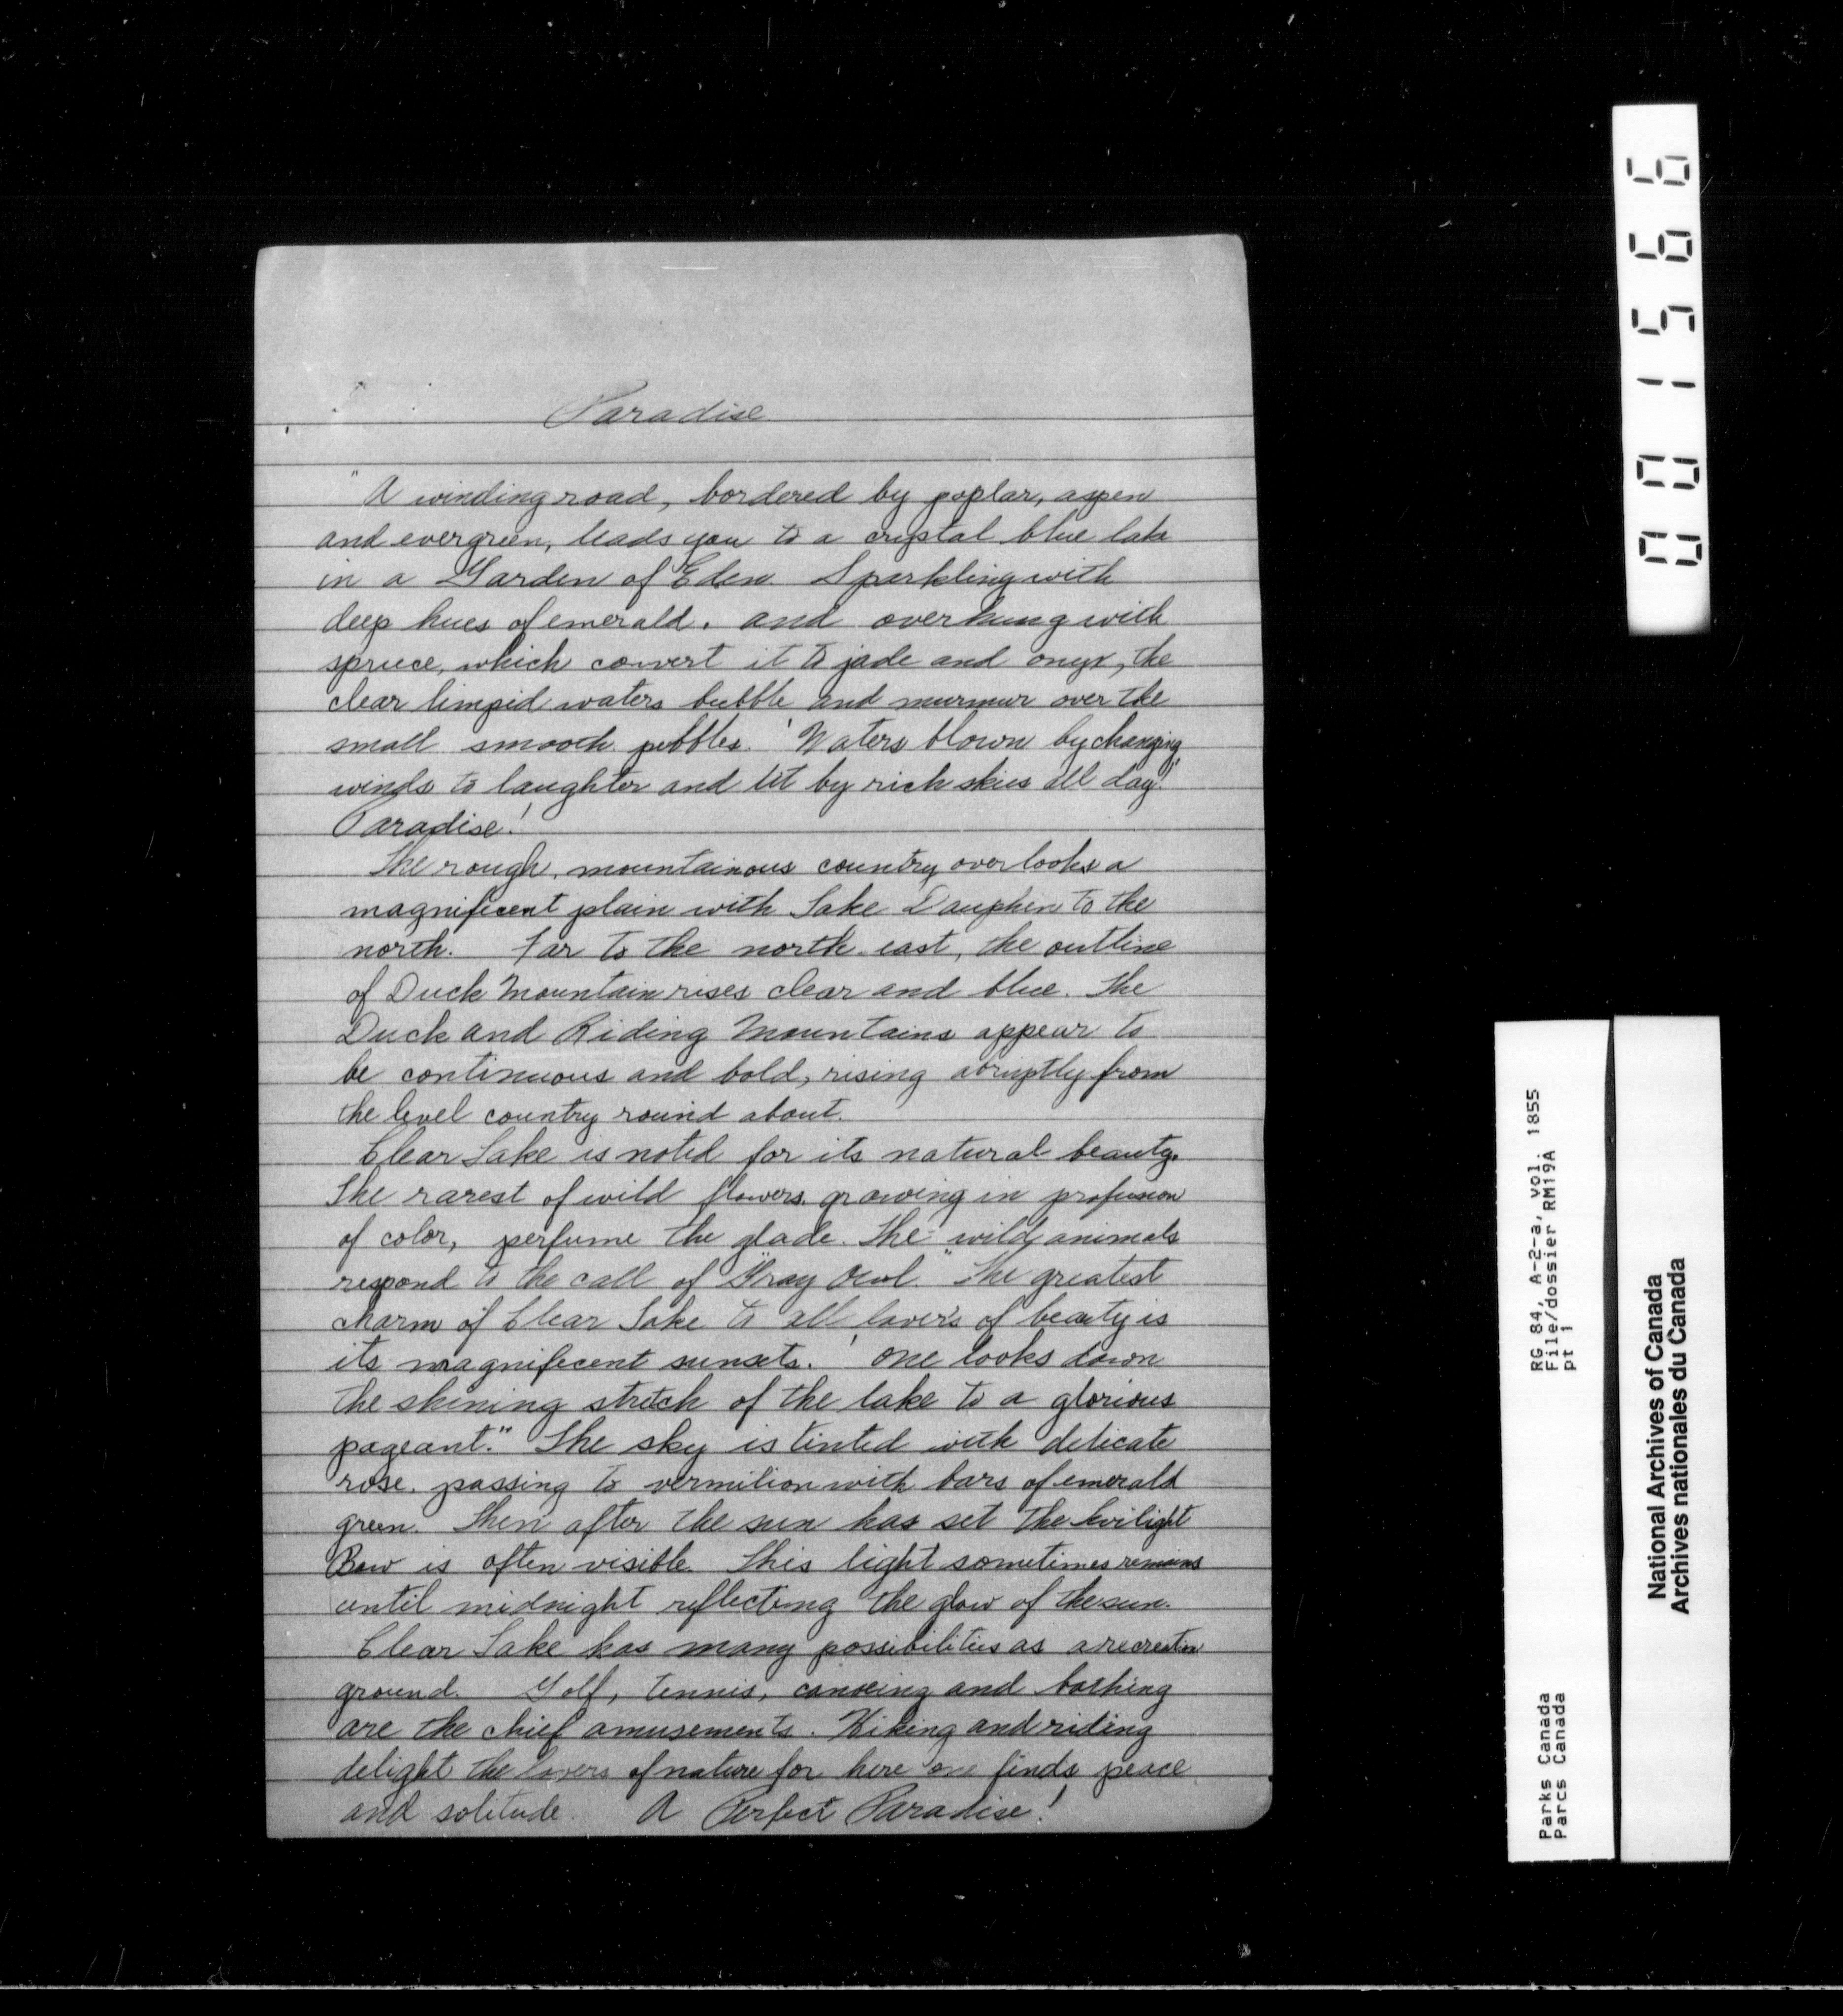 Paradise
"A winding road, bordered by poplar, aspen
and evergreen, leads you to a crystal blue lake
in a Garden of Eden. Sparkling with
deep hues of emerald, and overhung with
spruce, which convert it to jade and onyx, the
clear limpid waters bubble and murmur over the
small smooth pebbles. 'Waters blown by changing
winds to laughter and lit by rich skies all day!"
Paradise!
The rough, mountainous country overlooks a
magnificent plain with Lake Dauphin to the
north. Far to the north-east, the outline
of Duck Mountain rises clear and blue. The
Duck and Riding Mountains appear to
be continuous and bold, rising abruptly from
the level country round about.
Clear Lake is noted for its natural beauty.
The rarest of wild flowers, growing in profusion
of color, perfume the glade. The wild animals
respond to the call of "Gray Owl." The greatest
charm of Clear Lake to all lovers of beauty is
its magnificent sunsets. 'One looks down
the shining stretch of the lake to a glorious
pageant." The sky is tinted with delicate
rose, passing to vermilion with bars of emerald
green. Then after the sun has set the twilight
Bow is often visible. This light sometimes remains
until midnight reflecting the glow of the sun.
Clear Lake has many possibilities as a recreation
ground. Golf, tennis, canoeing and bathing
are the chief amusements. Hiking and riding
delight the lovers of nature for here one finds peace
and solitude. A Perfect Paradise!
001566
RG 84, A-2-a, vol. 1855
File/dossier RM19A
pt 1
Parks Canada
Parcs Canada
National Archives of Canada
Archives nationales du Canada